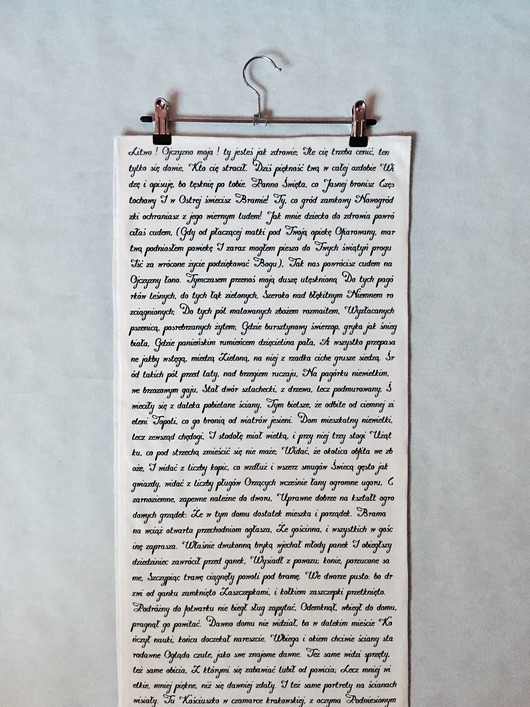 Litwo ! Ojczyzno moja ! ty jesteś jak zdrowie, Ile cię trzeba cenić, ten
tylko się dowie, Kto cię stracił. Dziś piękność twą w całej ozdobie Wi
dzę i opisuję, bo tęsknię po tobie. Panno Święta, co Jasnej bronisz Częs
tochowy I w Ostrej świecisz Bramie! Ty, co gród zamkowy Nowogród
zki ochraniasz z jego wiernym ludem! Jak mnie dziecko do zdrowia powró
ciłaś cudem, (Gdy od płaczącej matki pod Twoją opiekę Ofiarowany, mar
twą podniosłem powiekę I zaraz mogłem pieszo do Twych świątyń progu
Iść za wrócone życie podziękować Bogu), Tak nas powrócisz cudem na
Ojczyzny łono. Tymczasem przenoś moją duszę utęsknioną Do tych pagó
rków leśnych, do tych łąk zielonych, Szeroko nad błękitnym Niemnem ro
zciągnionych; Do tych pól malowanych zbożem rozmaitem, Wyzłacanych
pszenicą, posrebrzanych żytem; Gdzie bursztynowy świerzop, gryka jak śnieg
biała, Gdzie panieńskim rumieńcem dzięcielina pała, A wszystko przepasa
ne jakby wstęgą, miedzą Zieloną, na niej z rzadka ciche grusze siedzą. Śr
ód takich pól przed laty, nad brzegiem ruczaju, Na pagórku niewielkim,
we brzozowym gaju, Stał dwór szlachecki, z drzewa, lecz podmurowany; Ś
wieciły się z daleka pobielane ściany, Tym bielsze, że odbite od ciemnej zi
eleni Topoli, co go bronią od wiatrów jesieni. Dom mieszkalny niewielki,
lecz zewsząd chędogi, I stodołę miał wielką, i przy niej trzy stogi Użąt
ku, co pod strzechą zmieścić się nie może; Widać, że okolica obfita we zb
oże, I widać z liczby kopic, co wzdłuż i wszerz smugów Świecą gęsto jak
gwiazdy, widać z liczby pługów Orzących wcześnie łany ogromne ugoru, C
zarnoziemne, zapewne należne do dworu, Uprawne dobrze na kształt ogro
dowych grządek: Że w tym domu dostatek mieszka i porządek. Brama
na wciąż otwarta przechodniom ogłasza, Że gościnna, i wszystkich w gośc
inę zaprasza. Właśnie dwukonną bryką wjechał młody panek I obiegłszy
dziedziniec zawrócił przed ganek, Wysiadł z powozu; konie, porzucone sa
me, Szczypiąc trawę ciągnęły powoli pod bramę. We dworze pusto: bo dr
zwi od ganku zamknięto Zaszczepkami, i kołkiem zaszczepki przetknięto.
Podróżny do folwarku nie biegł sług zapytać, Odemknął, wbiegł do domu,
pragnął go powitać. Dawno domu nie widział, bo w dalekim mieście Ko
ńczył nauki, końca doczekał nareszcie. Wbiega i okiem chciwie ściany sta
rodawne Ogląda czule, jako swe znajome dawne. Też same widzi sprzęty,
też same obicia, Z którymi się zabawiać lubił od powicia, Lecz mniej wi
elkie, mniej piękne, niż się dawniej zdały. I też same portrety na ścianach
wisiały. Tu Kościuszko w czamarce krakowskiej, z oczyma Podniesionym